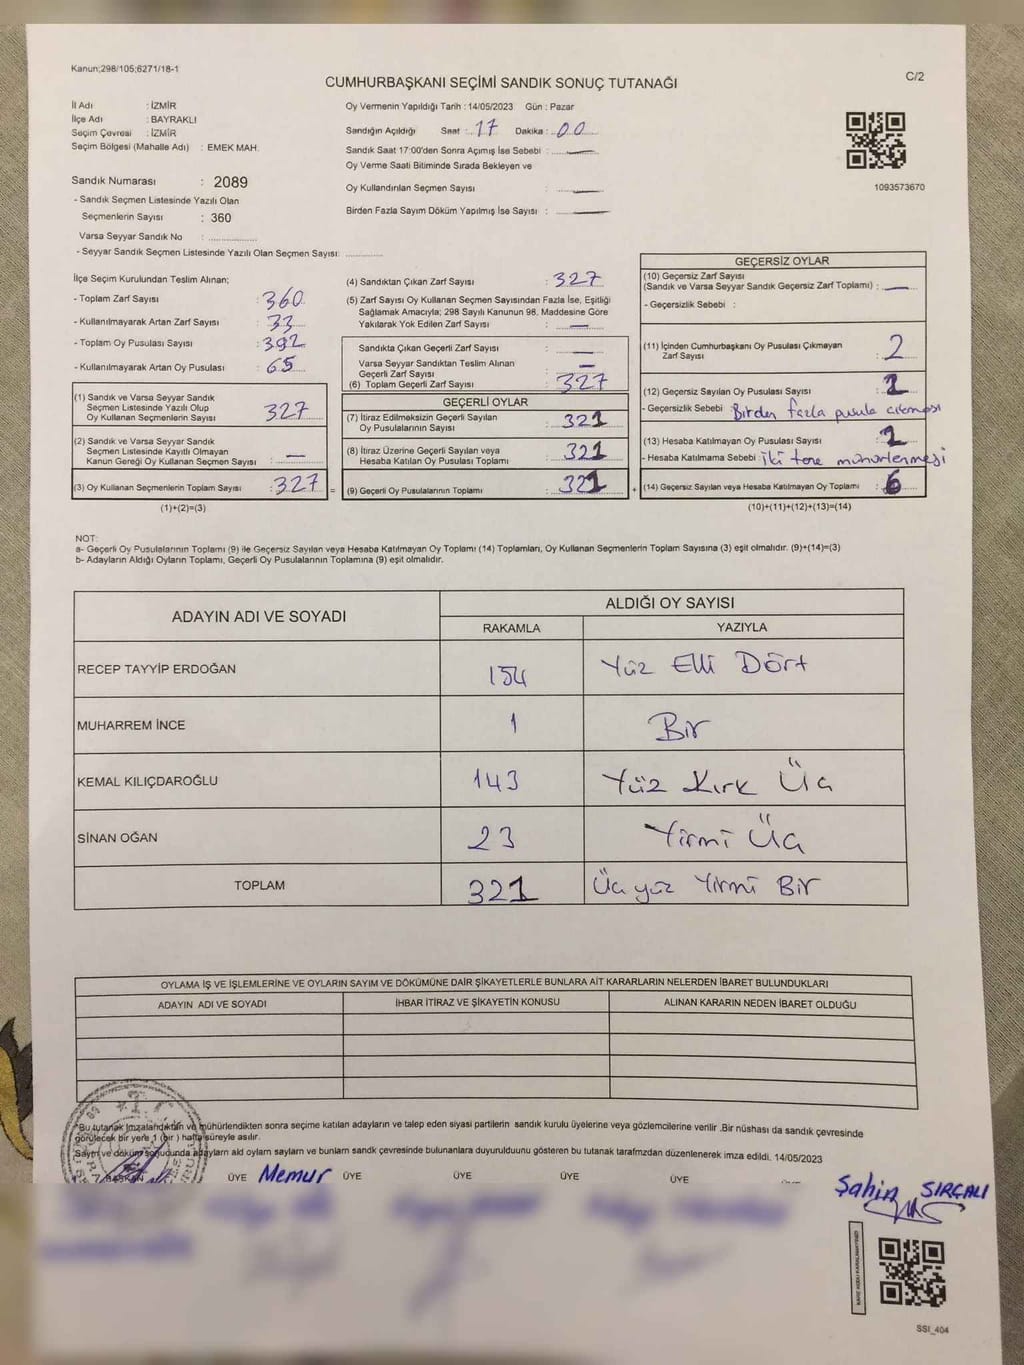 Kanun;298/105;6271/18-1
C/2
CUMHURBAŞKANI SEÇİMİ SANDIK SONUÇ TUTANAĞI
İl Adı : İZMİR
İlçe Adı : BAYRAKLI
Seçim Çevresi : İZMİR
Seçim Bölgesi (Mahalle Adı) : EMEK MAH.
Sandık Numarası : 2089
- Sandık Seçmen Listesinde Yazılı Olan
Seçmenlerin Sayısı : 360
Varsa Seyyar Sandık No : ................
- Seyyar Sandık Seçmen Listesinde Yazılı Olan Seçmen Sayısı: ............
Oy Vermenin Yapıldığı Tarih : 14/05/2023 Gün : Pazar
Sandığın Açıldığı Saat : 17 Dakika : 00
Sandık Saat 17:00'den Sonra Açılmış İse Sebebi : —
Oy Verme Saati Bitiminde Sırada Bekleyen ve
Oy Kullandırılan Seçmen Sayısı : —
Birden Fazla Sayım Döküm Yapılmış İse Sayısı : —
1093573670
İlçe Seçim Kurulundan Teslim Alınan;
- Toplam Zarf Sayısı : 360
- Kullanılmayarak Artan Zarf Sayısı : 33
- Toplam Oy Pusulası Sayısı : 392
- Kullanılmayarak Artan Oy Pusulası : 65
(1) Sandık ve Varsa Seyyar Sandık
Seçmen Listesinde Yazılı Olup
Oy Kullanan Seçmenlerin Sayısı : 327
(2) Sandık ve Varsa Seyyar Sandık
Seçmen Listesinde Kayıtlı Olmayan
Kanun Gereği Oy Kullanan Seçmen Sayısı : —
(3) Oy Kullanan Seçmenlerin Toplam Sayısı : 327 =
(1)+(2)=(3)
(4) Sandıktan Çıkan Zarf Sayısı : 327
(5) Zarf Sayısı Oy Kullanan Seçmen Sayısından Fazla İse, Eşitliği
Sağlamak Amacıyla; 298 Sayılı Kanunun 98. Maddesine Göre
Yakılarak Yok Edilen Zarf Sayısı : —
Sandıkta Çıkan Geçerli Zarf Sayısı : —
Varsa Seyyar Sandıktan Teslim Alınan
Geçerli Zarf Sayısı : —
(6) Toplam Geçerli Zarf Sayısı : 327
GEÇERLİ OYLAR
(7) İtiraz Edilmeksizin Geçerli Sayılan
Oy Pusulalarının Sayısı : 321
(8) İtiraz Üzerine Geçerli Sayılan veya
Hesaba Katılan Oy Pusulası Toplamı : 321
(9) Geçerli Oy Pusulalarının Toplamı : 321 +
GEÇERSİZ OYLAR
(10) Geçersiz Zarf Sayısı
(Sandık ve Varsa Seyyar Sandık Geçersiz Zarf Toplamı) : —
- Geçersizlik Sebebi :
(11) İçinden Cumhurbaşkanı Oy Pusulası Çıkmayan
Zarf Sayısı : 2
(12) Geçersiz Sayılan Oy Pusulası Sayısı :
- Geçersizlik Sebebi : Birden fazla pusula
(13) Hesaba Katılmayan Oy Pusulası Sayısı :
- Hesaba Katılmama Sebebi : iki tere mühürlenmesi
(14) Geçersiz Sayılan veya Hesaba Katılmayan Oy Toplamı : 6
(10)+(11)+(12)+(13)=(14)
NOT:
a- Geçerli Oy Pusulalarının Toplamı (9) ile Geçersiz Sayılan veya Hesaba Katılmayan Oy Toplamı (14) Toplamları, Oy Kullanan Seçmenlerin Toplam Sayısına (3) eşit olmalıdır. (9)+(14)=(3)
b- Adayların Aldığı Oyların Toplamı, Geçerli Oy Pusulalarının Toplamına (9) eşit olmalıdır.
ADAYIN ADI VE SOYADI
ALDIĞI OY SAYISI
RAKAMLA YAZIYLA
RECEP TAYYİP ERDOĞAN 154 Yüz Elli Dört
MUHARREM İNCE 1 Bir
KEMAL KILIÇDAROĞLU 143 Yüz Kırk Üç
SİNAN OĞAN 23 Yirmi Üç
TOPLAM 321 Üç yüz Yirmi Bir
OYLAMA İŞ VE İŞLEMLERİNE VE OYLARIN SAYIM VE DÖKÜMÜNE DAİR ŞİKAYETLERLE BUNLARA AİT KARARLARIN NELERDEN İBARET BULUNDUKLARI
ADAYIN ADI VE SOYADI İHBAR İTİRAZ VE ŞİKAYETİN KONUSU ALINAN KARARIN NEDEN İBARET OLDUĞU
*Bu tutanak imzalandıktan ve mühürlendikten sonra seçime katılan adayların ve talep eden siyasi partilerin sandık kurulu üyelerine veya gözlemcilerine verilir .Bir nüshası da sandık çevresinde
görülecek bir yere 1 (bir ) hafta süreyle asılır.
Sayım ve döküm sonucunda adayların ald oyların sayların ve bunların sandk çevresinde bulunanlara duyurulduunu gösteren bu tutanak tarafmzdan düzenlenerek imza edildi. 14/05/2023
BAŞKAN ÜYE Memur ÜYE ÜYE ÜYE ÜYE
Şahin SIRÇALI
KARE KODU KARALAMAYINIZ!
SSI_404